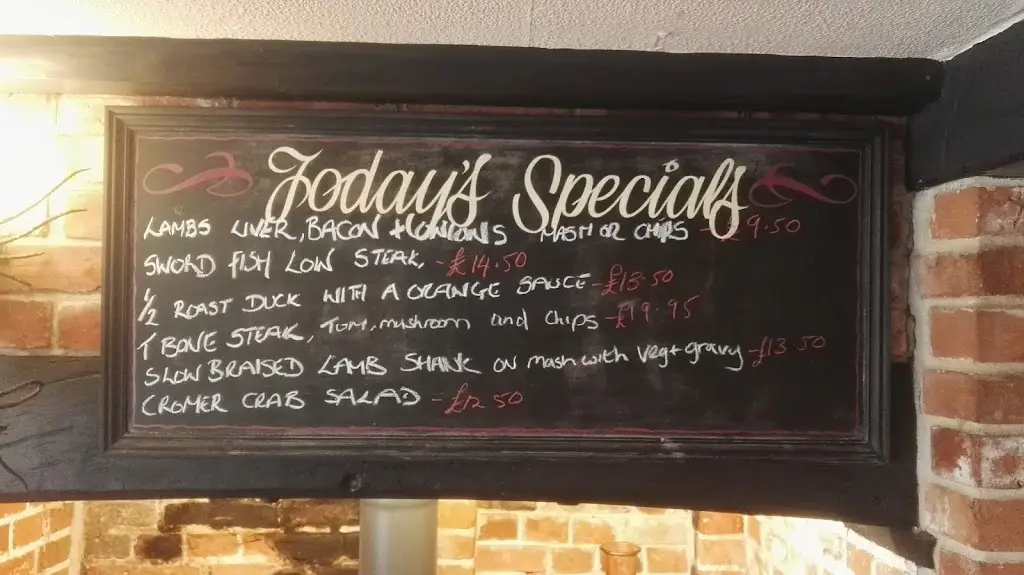 Today's Specials
LAMBS LIVER, BACON + ONIONS MASH OR CHIPS - £9.50
SWORD FISH LOW STEAK, - £14.50
1/2 ROAST DUCK WITH A ORANGE SAUCE - £13.50
T BONE STEAK, Tom, mushroom and chips - £19.95
SLOW BRAISED LAMB SHANK ON mash with veg + gravy - £13.50
CROMER CRAB SALAD - £12.50